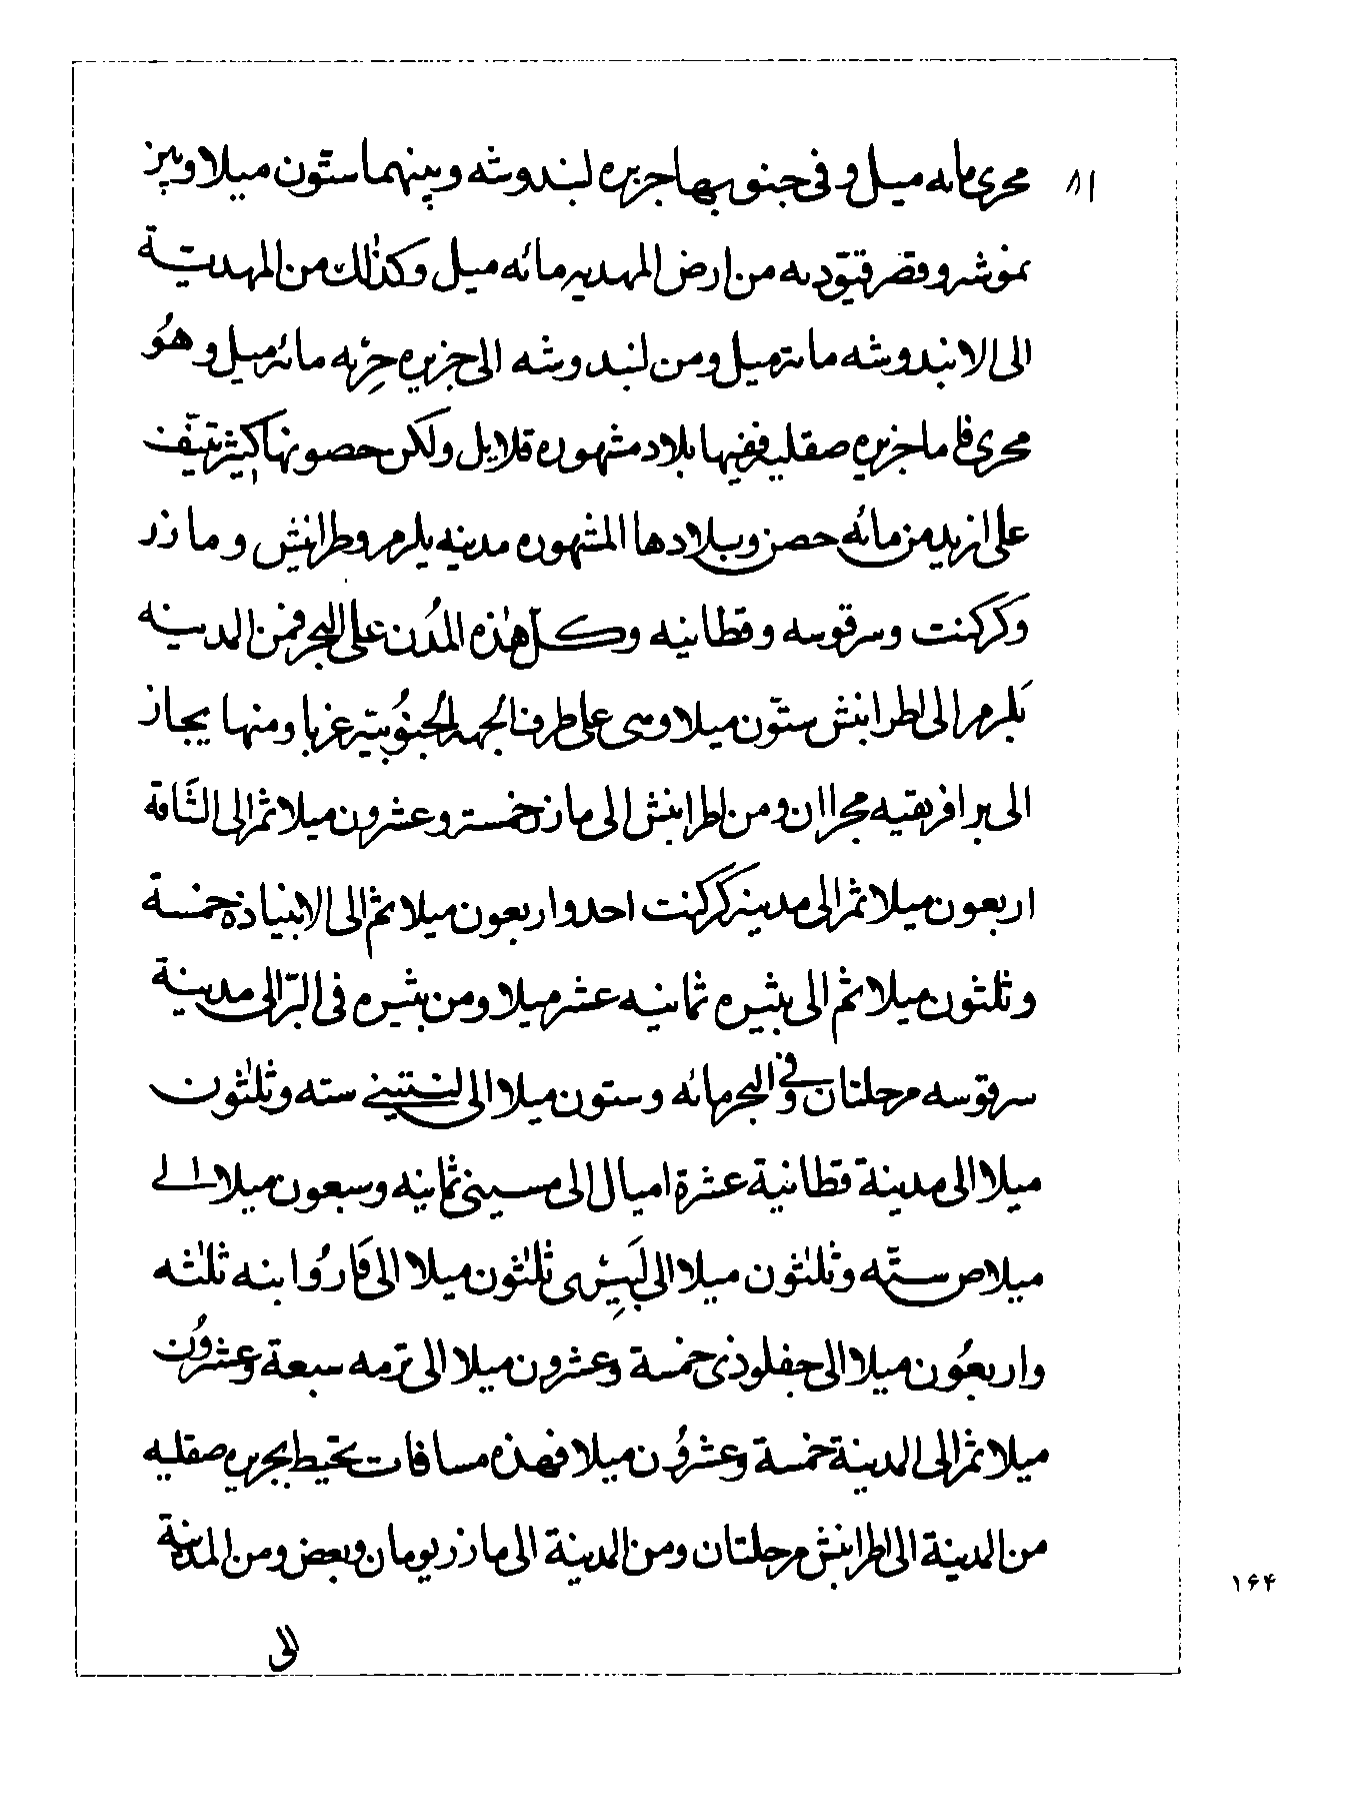 ٨١
مجرى مائه ميل و فى جنوبها جزيره لنبدوشه وبينهما ستّون ميلا وبين
نموشر وقصر قبّوديه من ارض المهديه مائه ميل وكذٰلك من المهديّة
الى الانبدوشه مائة ميل ومن لنبدوشه الى جزيره جِرْبه مائة ميل و هُو
مجرى فاما جزيره صقليه ففيها بلاد مشهوره قلايل ولكن حصونها كثير تنيّف
على ازيد من مائه حصن وبلادها المشهوره مدينه بلرم وطرابنش و مازر
وكركنت وسرقوسه وقطانيه وكلّ هٰذه المُدن على البحر فمن المدينه
بَلرم الى اطرابنش ستّون ميلا وهى على طرف الجهه الجنوُبيّة غربا ومنها يجاز
الى بر افريقيه مجراان ومن اطرابنش الى مازر خمسة وعشرون ميلا ثم الى الشّاقة
اربعون ميلا ثم الى مدينة كركنت احد واربعون ميلا ثم الى الانبياذه خمسة
وثلثون ميلا ثم الى بثيره ثمانيه عشر ميلا ومن بثيره فى البرّ الى مدينة
سرقوسه مرحلتان وفى البحر مائه وستون ميلا الى لنتينى سته وثلٰثون
ميلا الى مدينة قطانية عشرة اميال الى مسينى ثمانيه وسبعون ميلا الى
ميلاص ستّه وثلٰثون ميلا الى لَبِيرى ثلٰثون ميلا الى قَارُوا بنه ثلٰثه
واربعُون ميلا الى جفلوذى خمسة وعشرون ميلا الى ترمه سبعة وعشرُون
ميلا ثم الى المدينة خمسة وعشرُون ميلا فهذه مسافات تحيط بجزيره صقليه
من المدينة الى اطرابنش مرحلتان ومن المدينة الى مازر يومان وبعض ومن المدينة
الى
۱۶۴